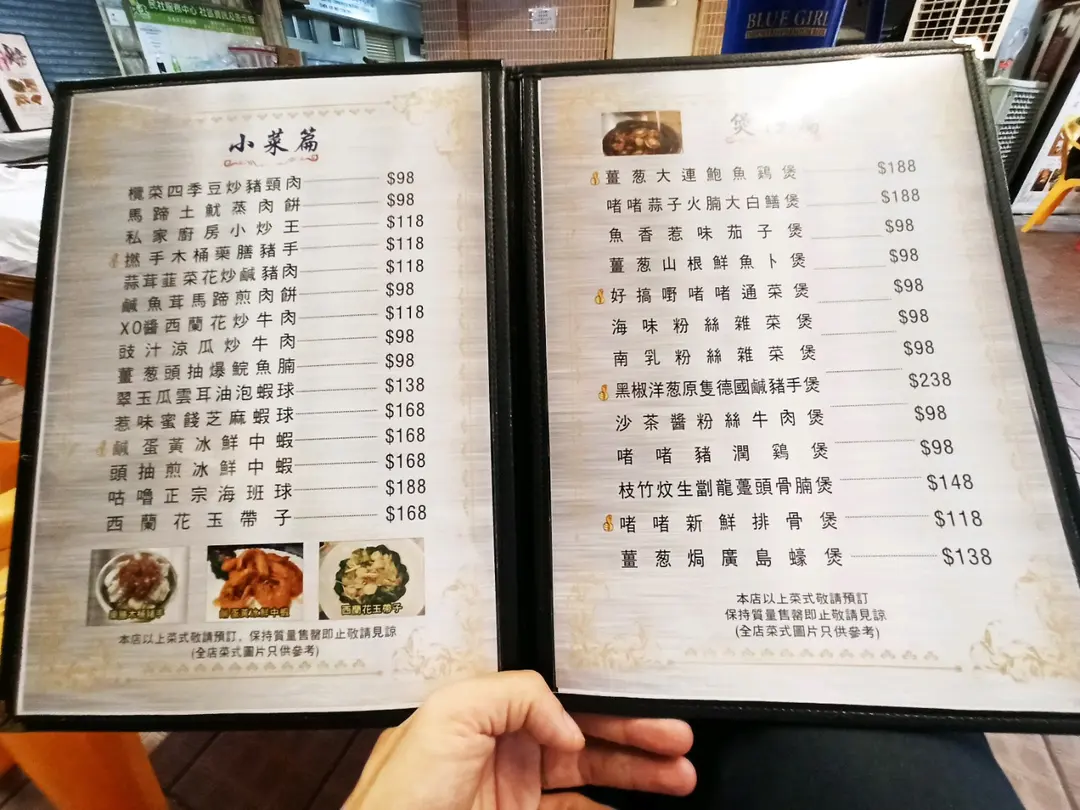 民社服務中心 社區資訊及指引
BLUE GIRL
小菜篇
欖菜四季豆炒豬頸肉 $98
馬蹄土魷蒸肉餅 $98
私家廚房小炒王 $118
撚手木桶藥膳豬手 $118
蒜茸韮菜花炒鹹豬肉 $118
鹹魚茸馬蹄煎肉餅 $98
XO醬西蘭花炒牛肉 $118
豉汁涼瓜炒牛肉 $98
薑葱頭抽爆鯇魚腩 $98
翠玉瓜雲耳油泡蝦球 $138
惹味蜜餞芝麻蝦球 $168
鹹蛋黃冰鮮中蝦 $168
頭抽煎冰鮮中蝦 $168
咕嚕正宗海班球 $188
西蘭花玉帶子 $168
鹹蛋黃冰鮮中蝦
西蘭花玉帶子
本店以上菜式敬請預訂，保持質量售罄即止敬請見諒
(全店菜式圖片只供參考)
煲
薑葱大連鮑魚鷄煲 $188
啫啫蒜子火腩大白鱔煲 $188
魚香惹味茄子煲 $98
薑葱山根鮮魚卜煲 $98
好搞嘢啫啫通菜煲 $98
海味粉絲雜菜煲 $98
南乳粉絲雜菜煲 $98
黑椒洋葱原隻德國鹹豬手煲 $238
沙茶醬粉絲牛肉煲 $98
啫啫豬潤鷄煲 $98
枝竹炆生劏龍躉頭骨腩煲 $148
啫啫新鮮排骨煲 $118
薑葱焗廣島蠔煲 $138
本店以上菜式敬請預訂
保持質量售罄即止敬請見諒
(全店菜式圖片只供參考)